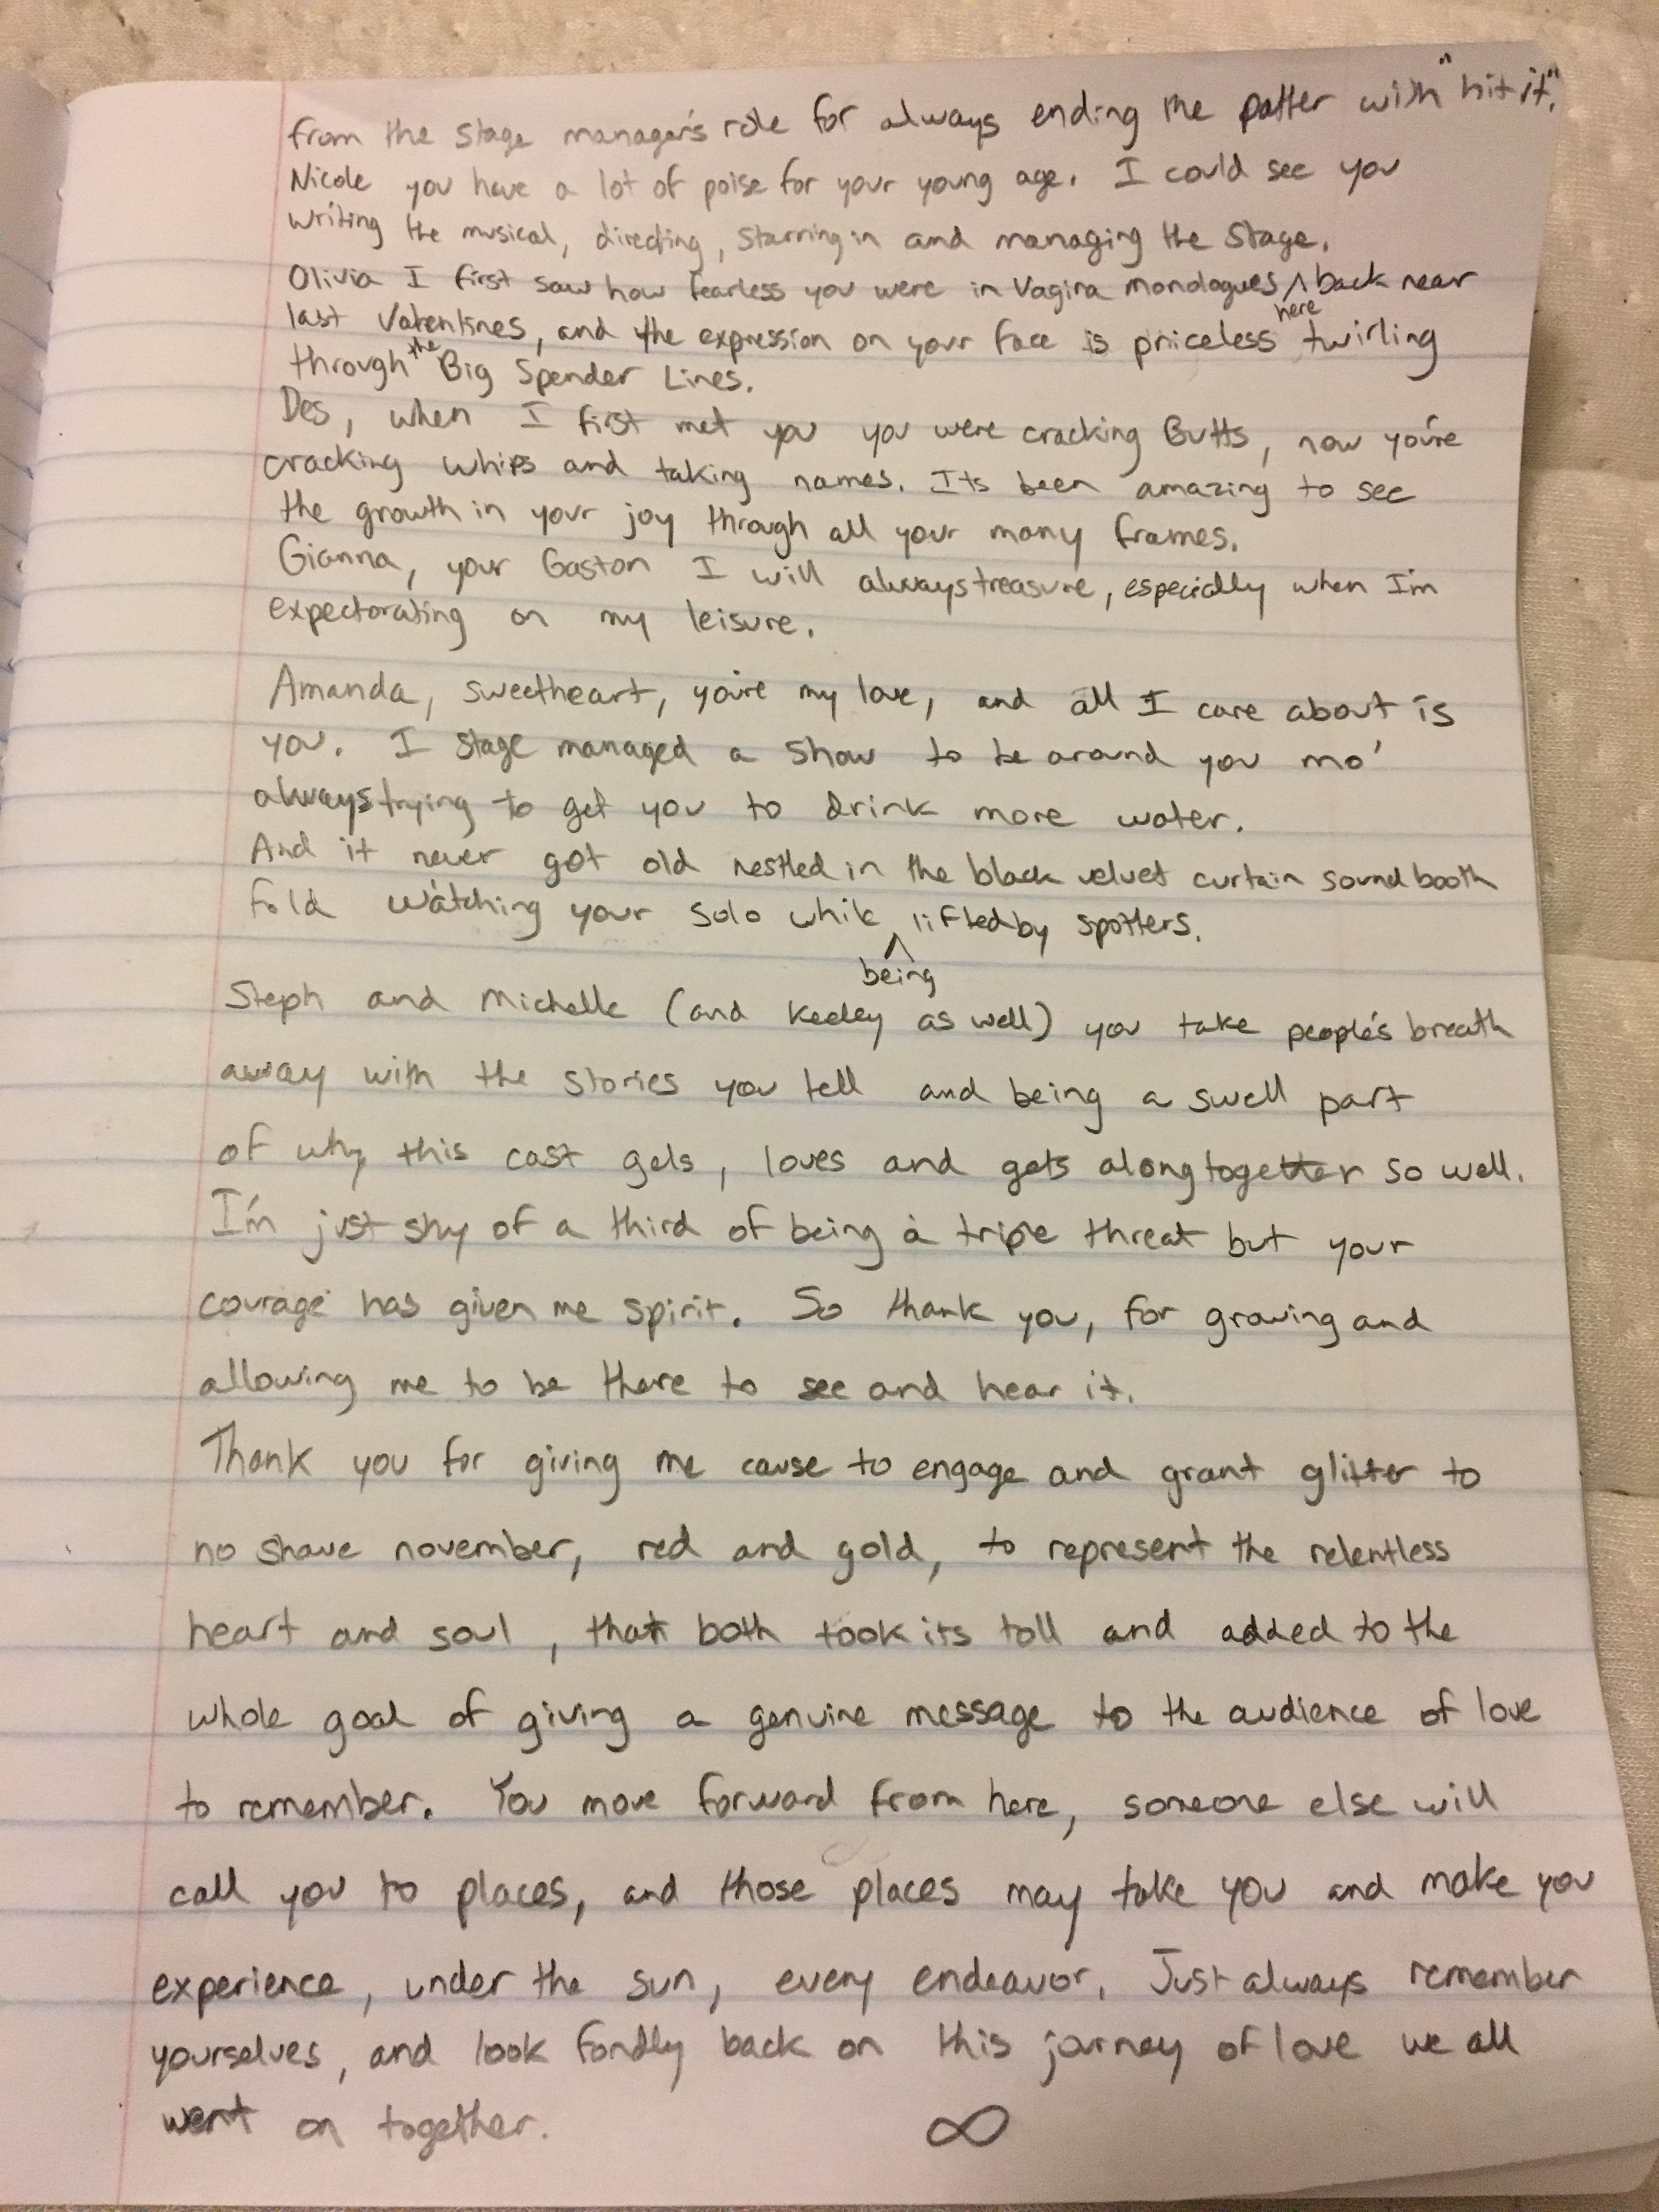 from the stage manager's role for always ending the patter with "hit it".
Nicole you have a lot of poise for your young age. I could see you
writing the musical, directing, starring in and managing the stage.
Olivia I first saw how fearless you were in Vagina monologues ^ back near
here
last Valentines, and the expression on your face is priceless twirling
through the Big Spender Lines.
Des, when I first met you you were cracking Butts, now you're
cracking whips and taking names. Its been amazing to see
the growth in your joy through all your many frames.
Gianna, your Gaston I will always treasure, especially when I'm
expectorating on my leisure.
Amanda, sweetheart, you're my love, and all I care about is
you. I stage managed a show to be around you mo'
always trying to get you to drink more water.
And it never got old nestled in the black velvet curtain sound booth
fold watching your solo while ^ lifted by spotters.
being
Steph and Michelle (and Keeley as well) you take people's breath
away with the stories you tell and being a swell part
of why this cast gels, loves and gets along together so well.
I'm just shy of a third of being a triple threat but your
courage has given me spirit. So thank you, for growing and
allowing me to be there to see and hear it.
Thank you for giving me cause to engage and grant glitter to
no shave november, red and gold, to represent the relentless
heart and soul, that both took its toll and added to the
whole goal of giving a genuine message to the audience of love
to remember. You move forward from here, someone else will
call you to places, and those places may take you and make you
experience, under the sun, every endeavor. Just always remember
yourselves, and look fondly back on this journey of love we all
went on together. ∞